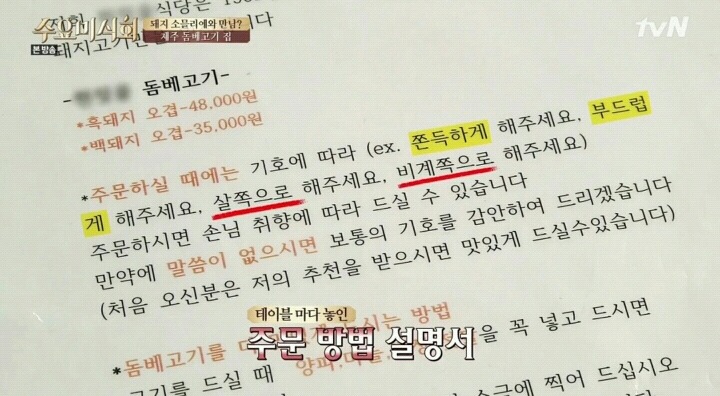 수요미식회
본방송
돼지 소믈리에와 만남?
제주 돔베고기 집
tvN
식당은
돼지고기만
니다
돔베고기-
*흑돼지 오겹-48,000원
*백돼지 오겹-35,000원
*주문하실 때에는 기호에 따라 (ex. 쫀득하게 해주세요, 부드럽
게 해주세요, 살쪽으로 해주세요, 비계쪽으로 해주세요)
주문하시면 손님 취향에 따라 드실 수 있습니다
만약에 말씀이 없으시면 보통의 기호를 감안하여 드리겠습니다
(처음 오신분은 저의 추천을 받으시면 맛있게 드실수있습니다)
테이블 마다 놓인
주문 방법 설명서
*돔베고기를 시는 방법
고기를 드실 때 양파, 을 꼭 넣고 드시면
소금에 찍어 드십시오